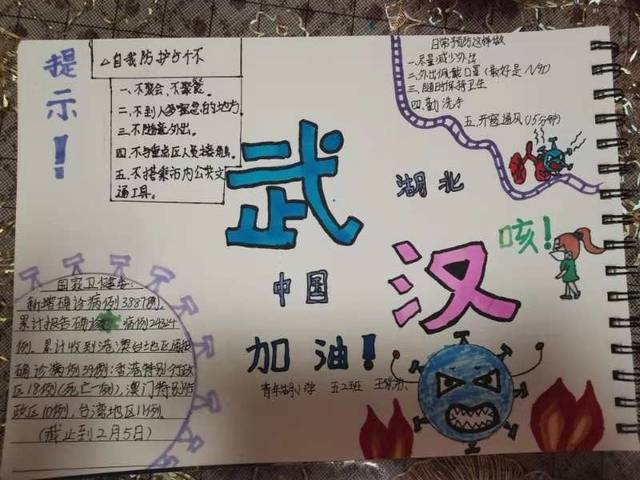 提示!
△自我防护5个不
一、不聚会,不聚餐。
二、不到人多密集的地方。
三、不随意外出。
四、不与重点区人员接触。
五、不搭乘市内公共交
通工具。
日常预防这样做
一、尽量减少外出
二、外出佩戴口罩(最好是N90)
三、随时保持卫生
四、勤洗手
五、开窗通风(15分钟)
武
汉
湖北
咳!
中国
加油!
青年湖小学 五2班
国家卫健委:
新增确诊病例3887例,
累计报告确诊病例24324
例。累计收到港澳台地区通报
确诊病例39例:香港特别行政
区18例(死亡一例),澳门特别行
政区10例,台湾地区11例。
(截止到2月5日)